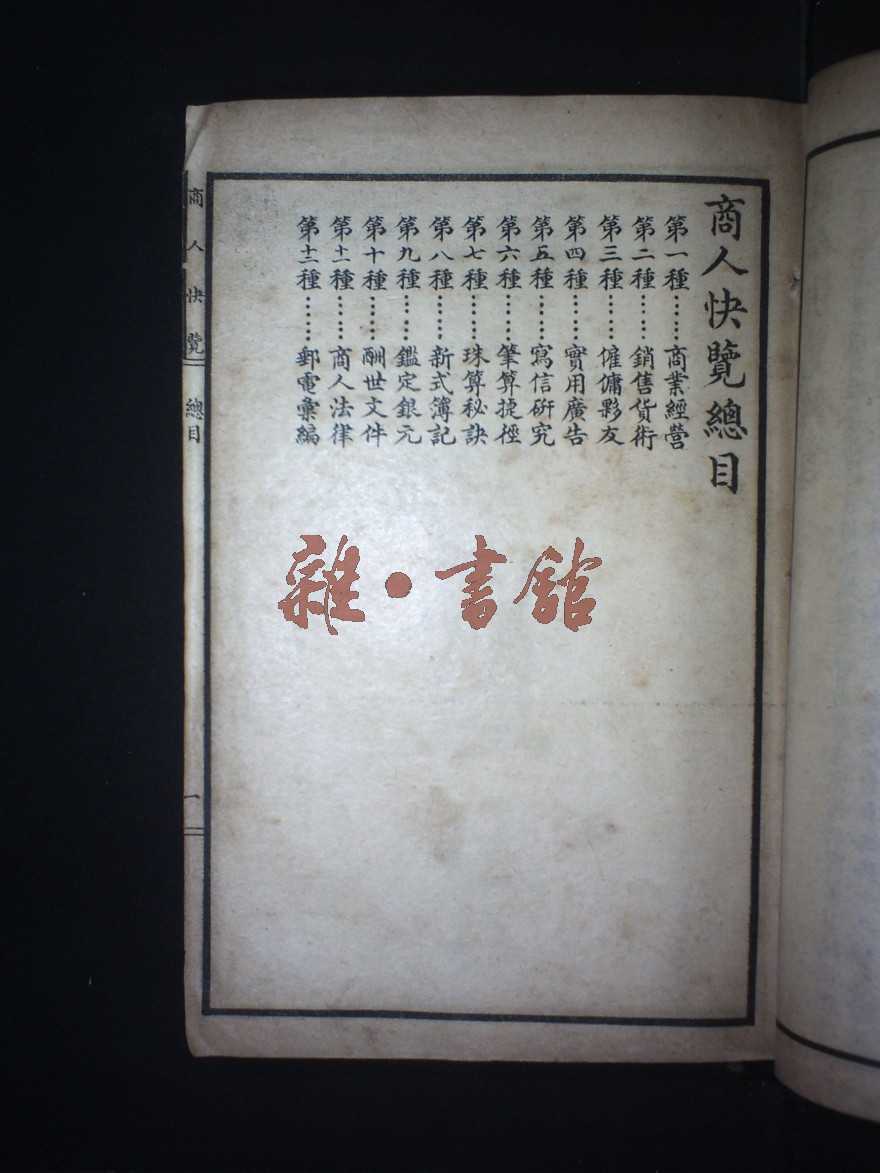 商人快覽總目
第一種……商業經營
第二種……銷售貨術
第三種……僱傭夥友
第四種……實用廣告
第五種……寫信研究
第六種……筆算捷徑
第七種……珠算秘訣
第八種……新式簿記
第九種……鑑定銀元
第十種……酬世文件
第十一種……商人法律
第十二種……郵電彙編
商人快覽 總目 一
雜·書館